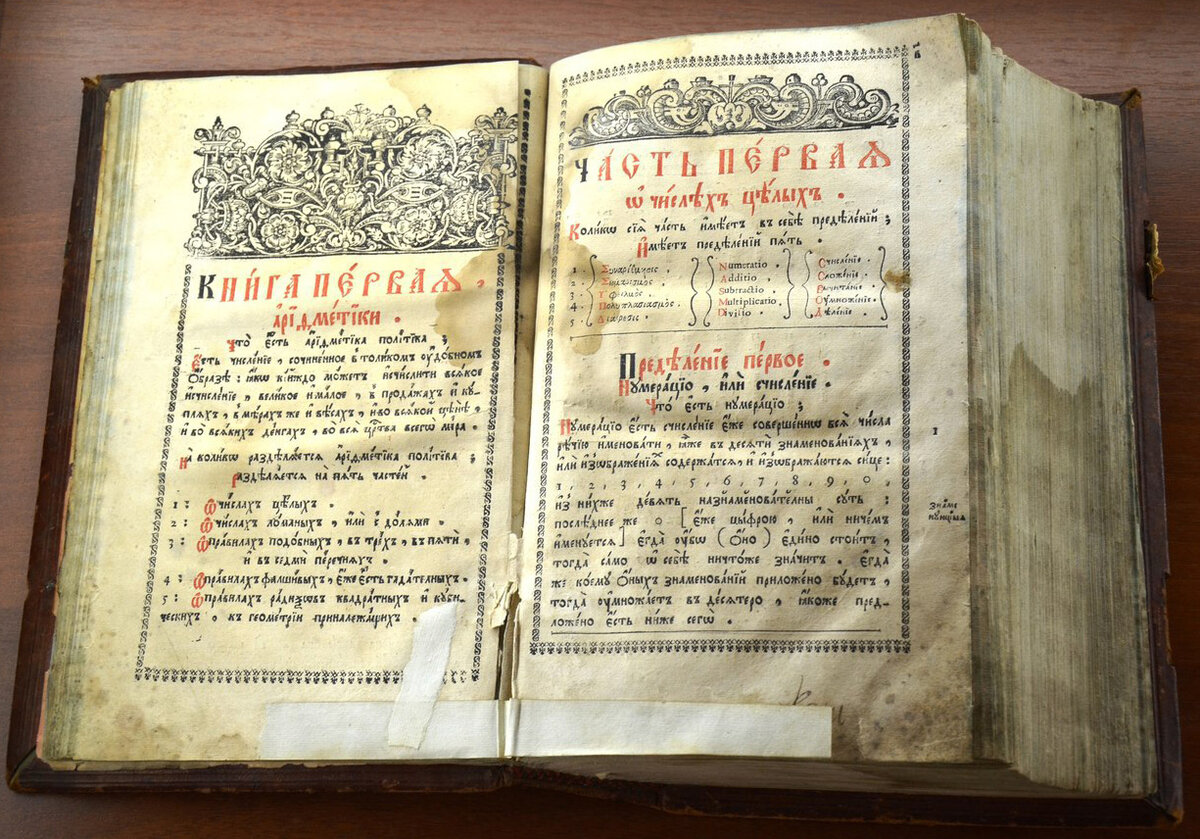 Кни́га пе́рваѧ ,
а҆рїѳме́тїки .
Что̀ є҆́сть а҆рїѳме́тїка полїтїка ;
Є҆́сть числе́нїе , сочине́нное в̾ толи́комъ ᲂу҆до́бномъ
ѻ҆́бразѣ : ꙗ҆́кѡ ки́йждо мо́жетъ и҆счи́слити всѧ́кое
и҆счисле́нїе , вели́кое и҆ ма́лое , в̾ прода́жахъ и҆ кꙋ́-
плѧхъ , в̾ мѣ́рахъ же и҆ вѣ́сахъ , и҆ во всѧ́кой цѣнѣ̀ ,
и҆ во всѧ́кихъ де́нгахъ , во всѧ̀ ца̑рства всегѡ̀ мі́ра .
На коли́кѡ раздѣлѧ́етсѧ а҆рїѳме́тїка полїтїка ;
Раздѣлѧ́етсѧ на пѧ́ть часте́й .
1 : Ѡ҆ чи́слахъ цѣ́лыхъ .
2 : Ѡ҆ чи́слахъ ло́маныхъ , и҆лѝ с̾ до́лѧми .
3 : Ѡ҆ пра́вилахъ подо́бныхъ , в̾ тре́хъ , в̾ пѧтѝ ,
и҆ в̾ седмѝ пере́чнѧхъ .
4 : Ѡ҆ пра́вилахъ фалши́выхъ , є҆́же є҆́сть гада́телныхъ .
5 : Ѡ҆ пра́вилахъ ра́диѯѡвъ квадра́тныхъ и҆ кꙋби́-
ческихъ , к̾ геоме́трїи приналежа́щихъ .
Ча́сть пе́рваѧ
ѡ҆ чи́слѣхъ цѣ́лыхъ .
Коли́кѡ сїѧ̀ ча́сть и҆мѣ́етъ в̾ себѣ̀ предѣле́нїй ;
И҆мѣ́етъ предѣле́нїй пѧ́ть .
1 . Numeratio . Счисле́нїе .
2 . Additio . Сложе́нїе .
3 . Subtractio . Вычита́нїе .
4 . Multiplicatio . Оу҆множе́нїе .
5 . Діаі́ресис . Divisio . Дѣле́нїе .
Предѣле́нїе пе́рвое .
Нꙋмера́цїо , и҆лѝ счисле́нїе .
Что̀ є҆́сть нꙋмера́цїо ;
Нꙋмера́цїо є҆́сть счисле́нїе є҆́же соверше́ннѡ всѧ̑ чи́сла
рѣ́чїю и҆менова́ти , ꙗ҆̀же в̾ десѧтѝ знаменова́нїихъ ,
и҆лѝ и҆з̾ѡбраже́нїѧхъ содержа́тсѧ , и҆ и҆з̾ѡбража́ютсѧ си́це :
1 , 2 , 3 , 4 , 5 , 6 , 7 , 8 , 9 , 0 ,
и҆з̾ ни́хже де́вѧть назнаменова́телны сꙋ́ть :
послѣ́днее же 0 [ є҆́же цы́фрою , и҆лѝ ничѣ́мъ
и҆менꙋ́етсѧ ] є҆гда̀ ᲂу҆́бѡ ( ѻ҆́но ) є҆ди́но стои́тъ ,
тогда̀ само̀ ѡ҆ себѣ̀ ничто́же зна́читъ . є҆гда́
же коемꙋ̀ ѻ҆́ныхъ знаменова́нїй приложе́но бꙋ́детъ ,
тогда̀ ᲂу҆множа́етъ в̾ де́сѧтеро , ꙗ҆́коже пред-
ложе́но є҆́сть ни́же сегѡ̀ .
1
зна́ме
нꙋ́ющыѧ